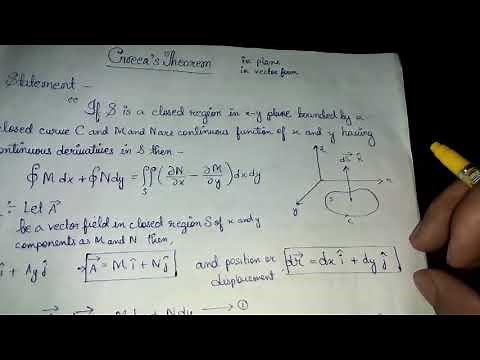 Green's Theorem
in plane
in vector form
Statement -
"If S is a closed region in x-y plane bounded by a
closed curve C and M and N are continuous function of x and y having
continuous derivatives in S then -
∮ M dx + ∮ N dy = ∬ₛ (∂N/∂x - ∂M/∂y) dx dy
z
ds n̂
x
y
S
C
: Let A⃗
be a vector field in closed region S of x and y
components as M and N then,
î + Ay ĵ → A⃗ = M î + N ĵ and position or
displacement. d⃗r = dx î + dy ĵ
N dy → ①